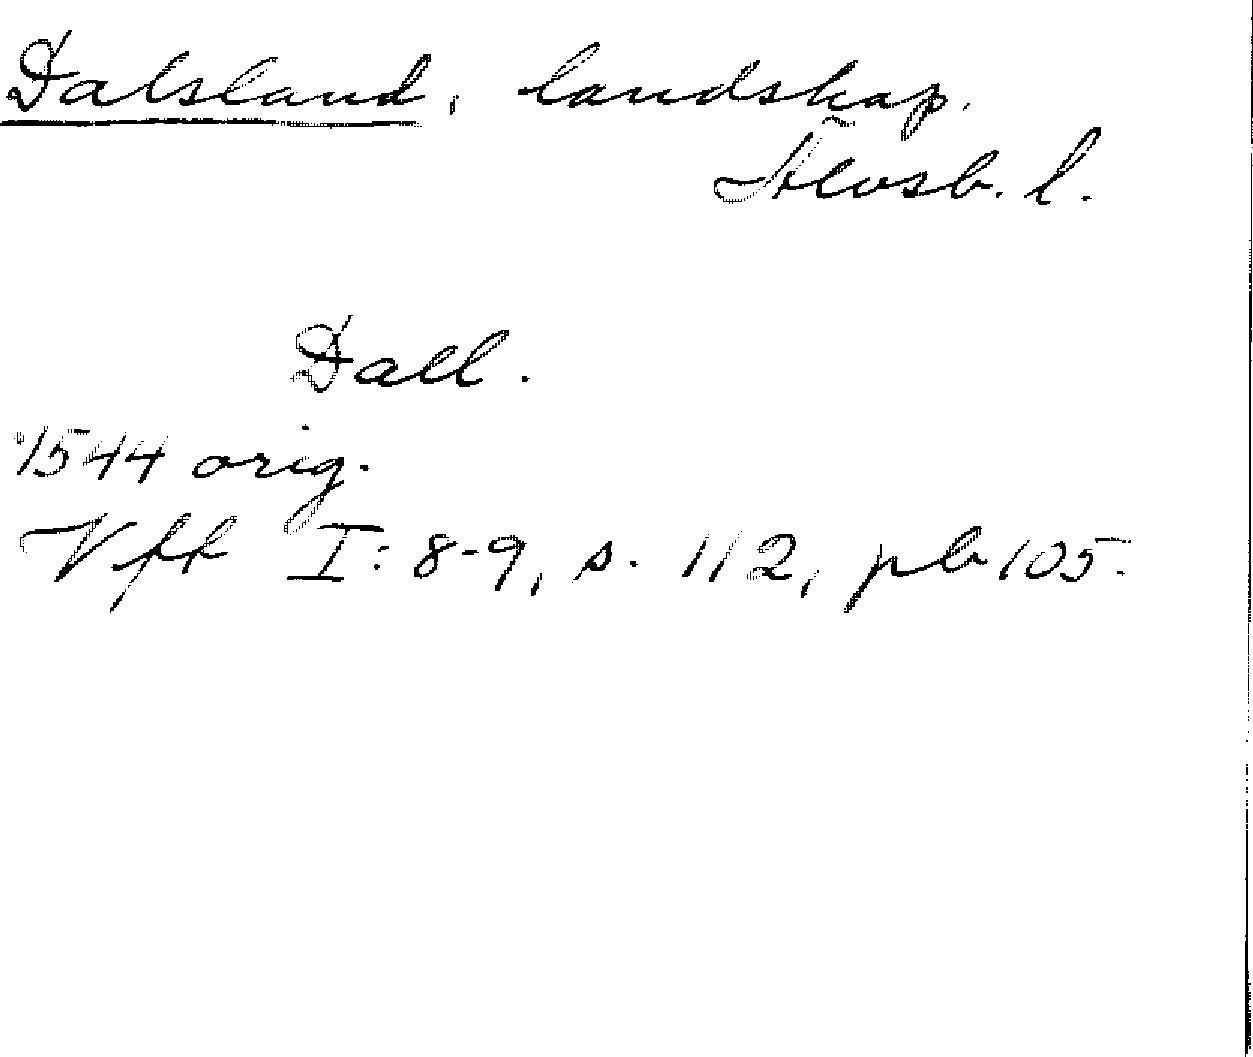 Dalsland, landskap.
Älvsb. l.
Dall.
1544 orig.
Vff I: 8-9, s. 112, pb 105.